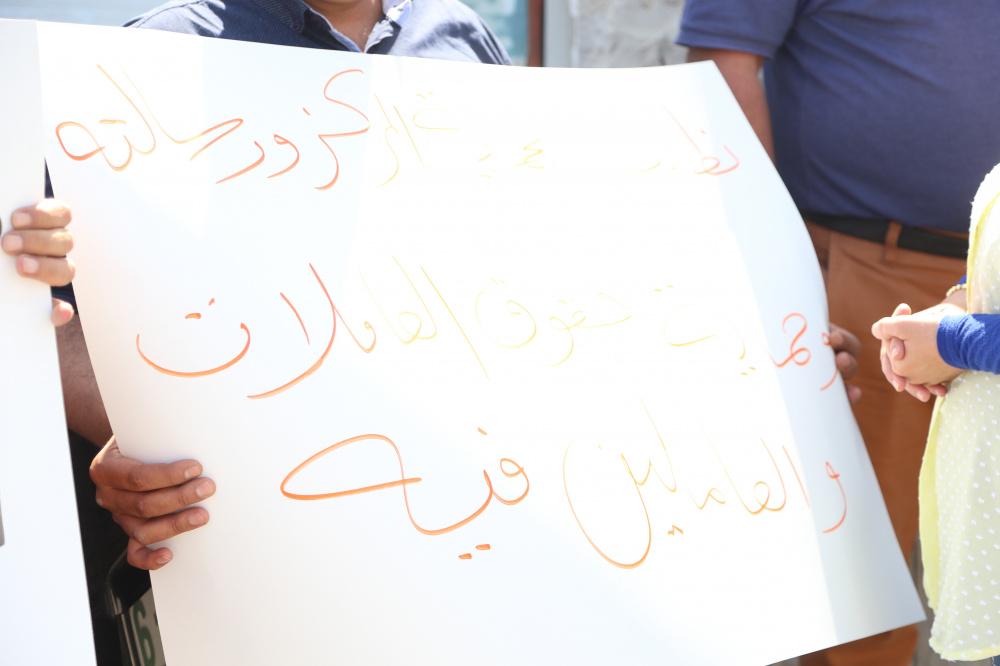 نطالب بحماية المركز ورسالته
وحماية حقوق العاملات
والعاملين فيه